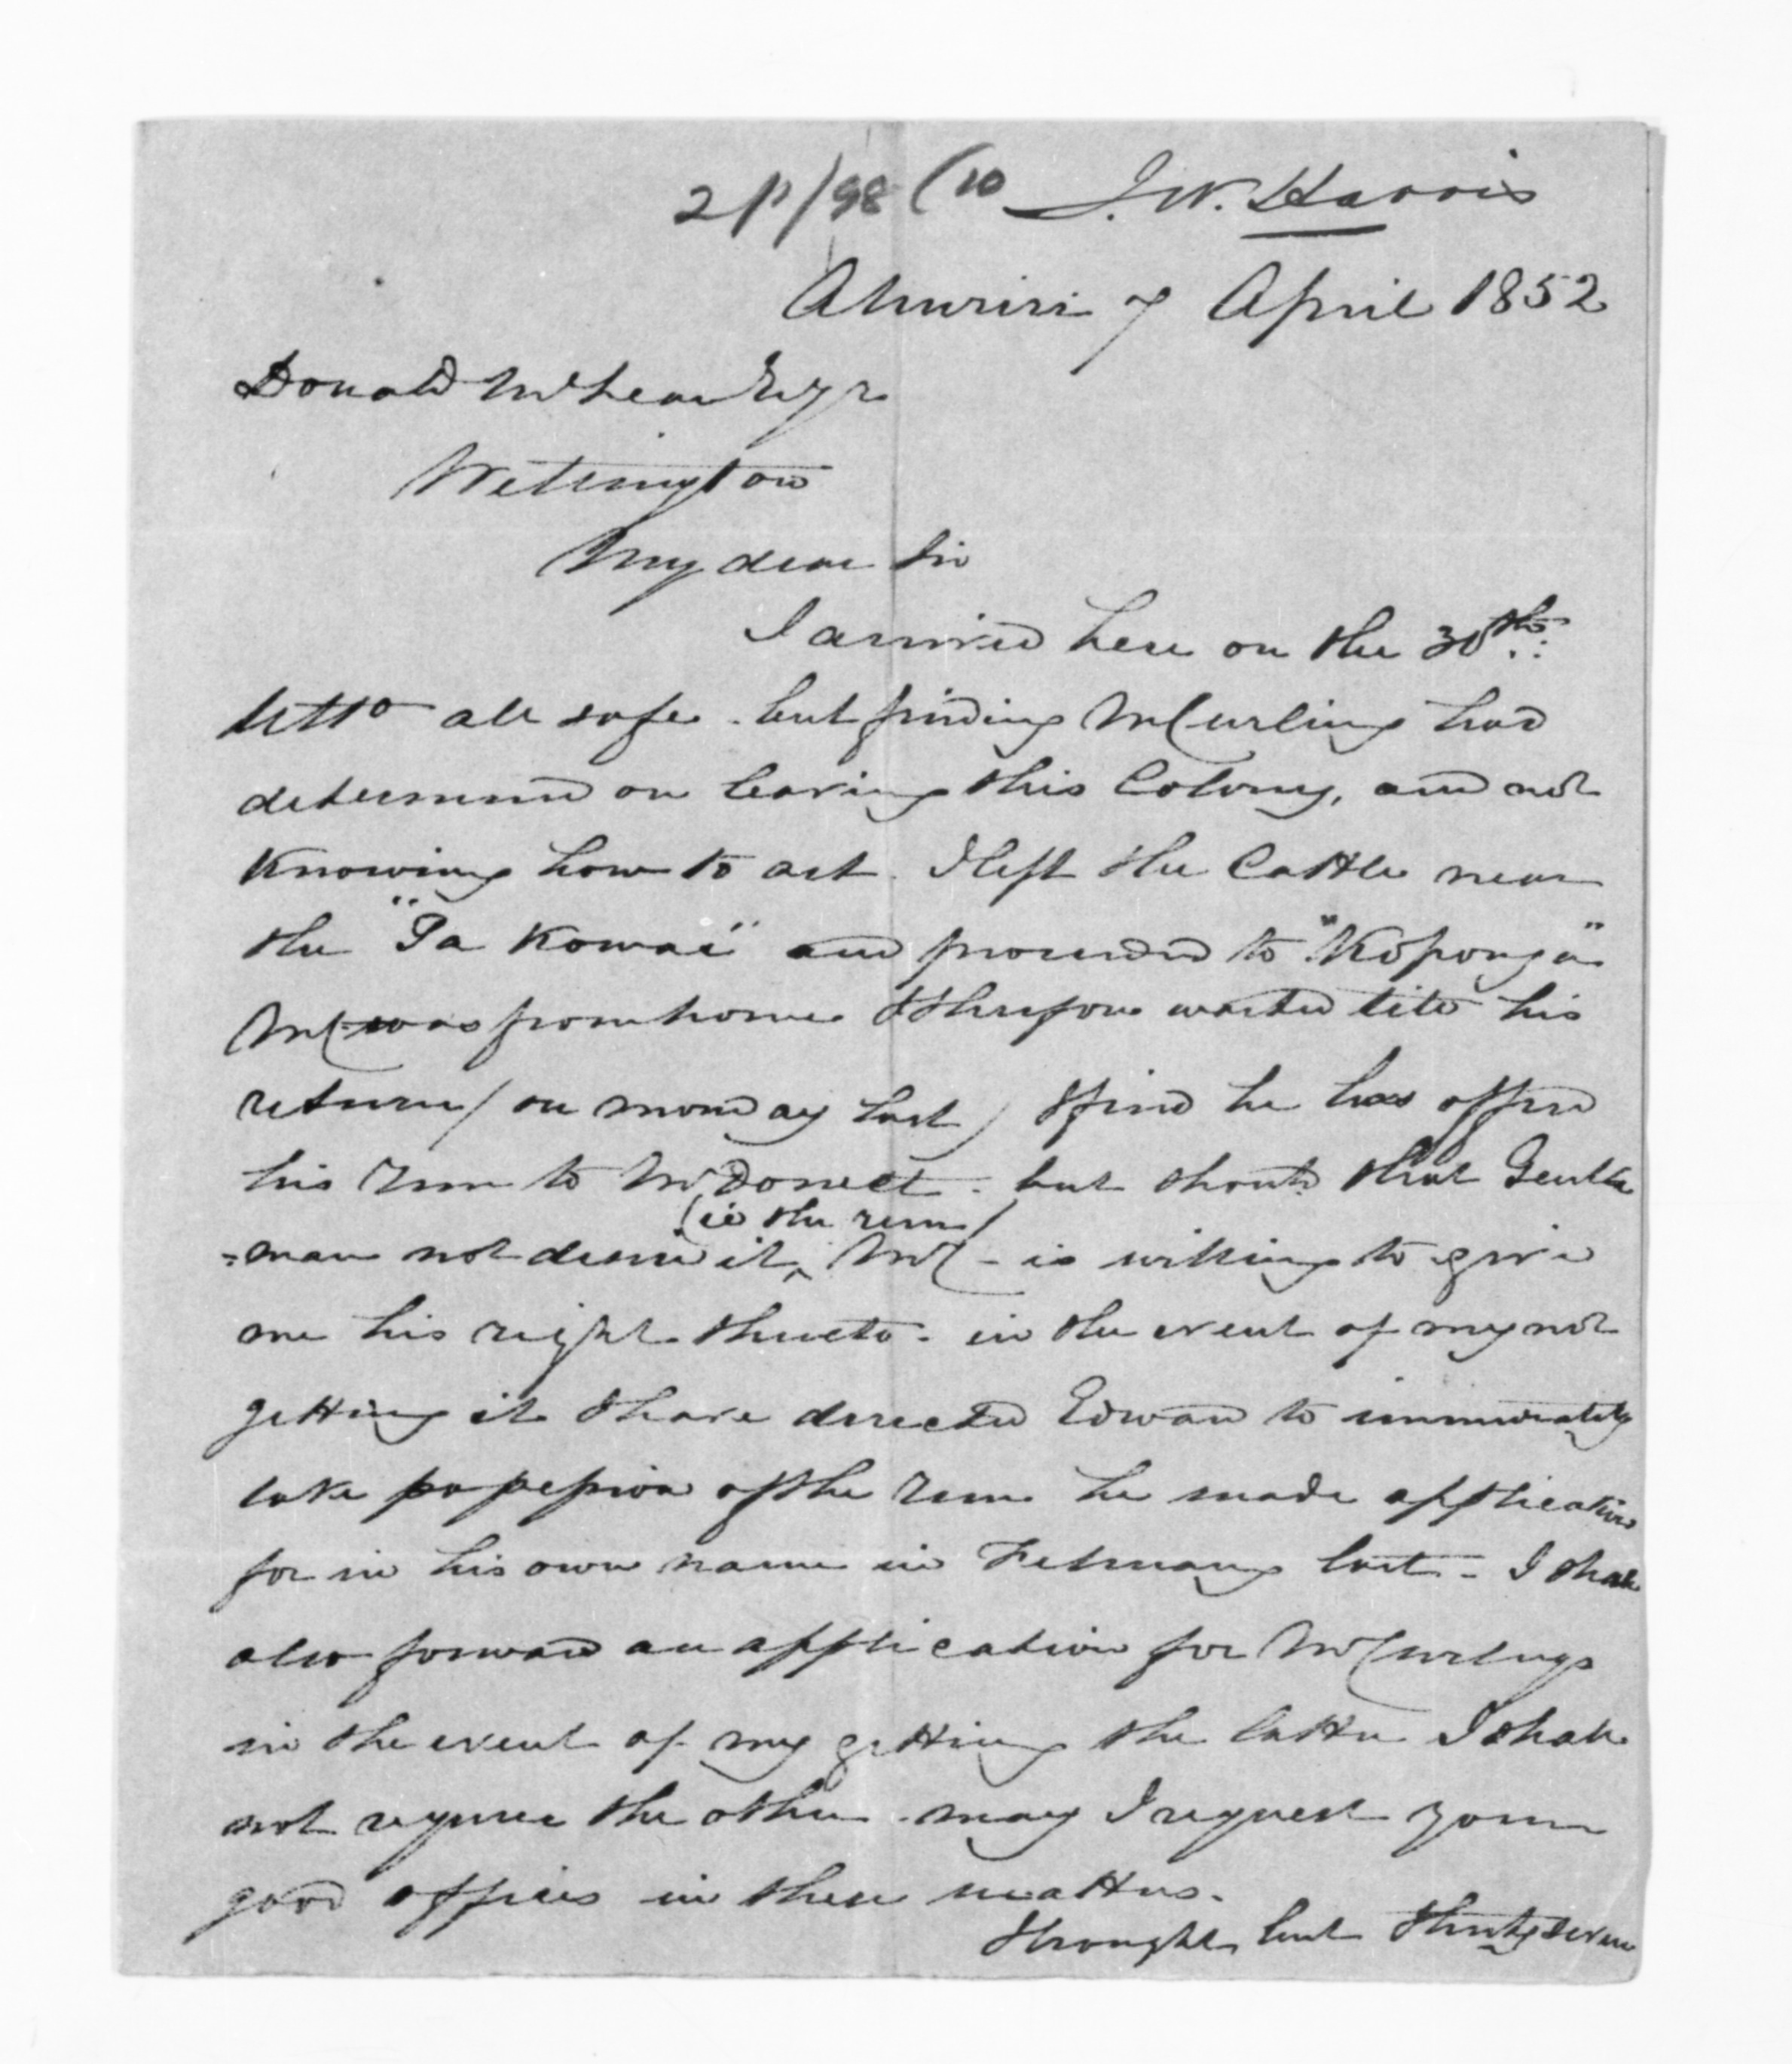 2p/98 (10 J. W. Harris
Ahuriri 7 April 1852
Donald McLean Esqr
Wellington
My dear Sir
I arrived here on the 30th:
Ulto all safe. but finding Mr Curling had
determined on leaving this Colony, and not
knowing how to act. I left the Cattle near
the "Pa Kowai" and proceeded to "Koponga"
Mr C was from home I therefore waited till his
return (on monday last) I find he has offered
his run to Mr Donell - but should that Gentle
(ie the run)
=man not desire it, Mr C - is willing to give
me his right thereto - in the event of my not
getting it I have directed Edward to immediately
take possession of the run he made application
for in his own name in February last - I shall
also forward an application for Mr Curlings
in the event of my getting the latter I shall
not require the other. may I request your
good offices in these matters.
I brought but Thirty seven